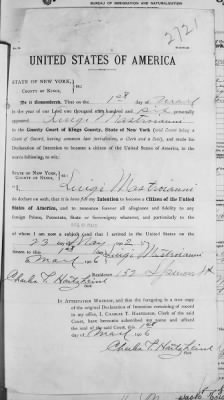 BUREAU OF IMMIGRATION AND NATURALIZATION
2721
UNITED STATES OF AMERICA
STATE OF NEW YORK,
COUNTY OF KINGS, ss:
Be it Remembered, That on the 1st day of
in the year of our Lord one thousand nine hundred and six personally
appeared Luigi Mastroianni
in the County Court of Kings County, State of New York (said Court being a
Court of Record, having common law jurisdiction, a Clerk and a Seal), and made his
Declaration of Intention to become a citizen of the United States of America, in the
words following, to wit:
STATE OF NEW YORK,
COUNTY OF KINGS, ss:
I, Luigi Mastroianni
do declare on oath, that it is bona fide my Intention to become a Citizen of the United
States of America, and to renounce forever all allegiance and fidelity to any
foreign Prince, Potentate, State or Sovereignty whatever, and particularly to the
of whom I am now a subject and that I arrived in the United States on the
23 day of May
Sworn to this 1st Luigi Mastroianni
6 Residence 152
Charles T. Hartzheim
Clerk
IN ATTESTATION WHEREOF, and that the foregoing is a true copy
of the original Declaration of Intention remaining of record
in my office, I, CHARLES T. HARTZHEIM, Clerk of the said
Court, have hereunto subscribed my name and affixed
the seal of the said Court this 1st
day of 6
Charles T. Hartzheim
Clerk